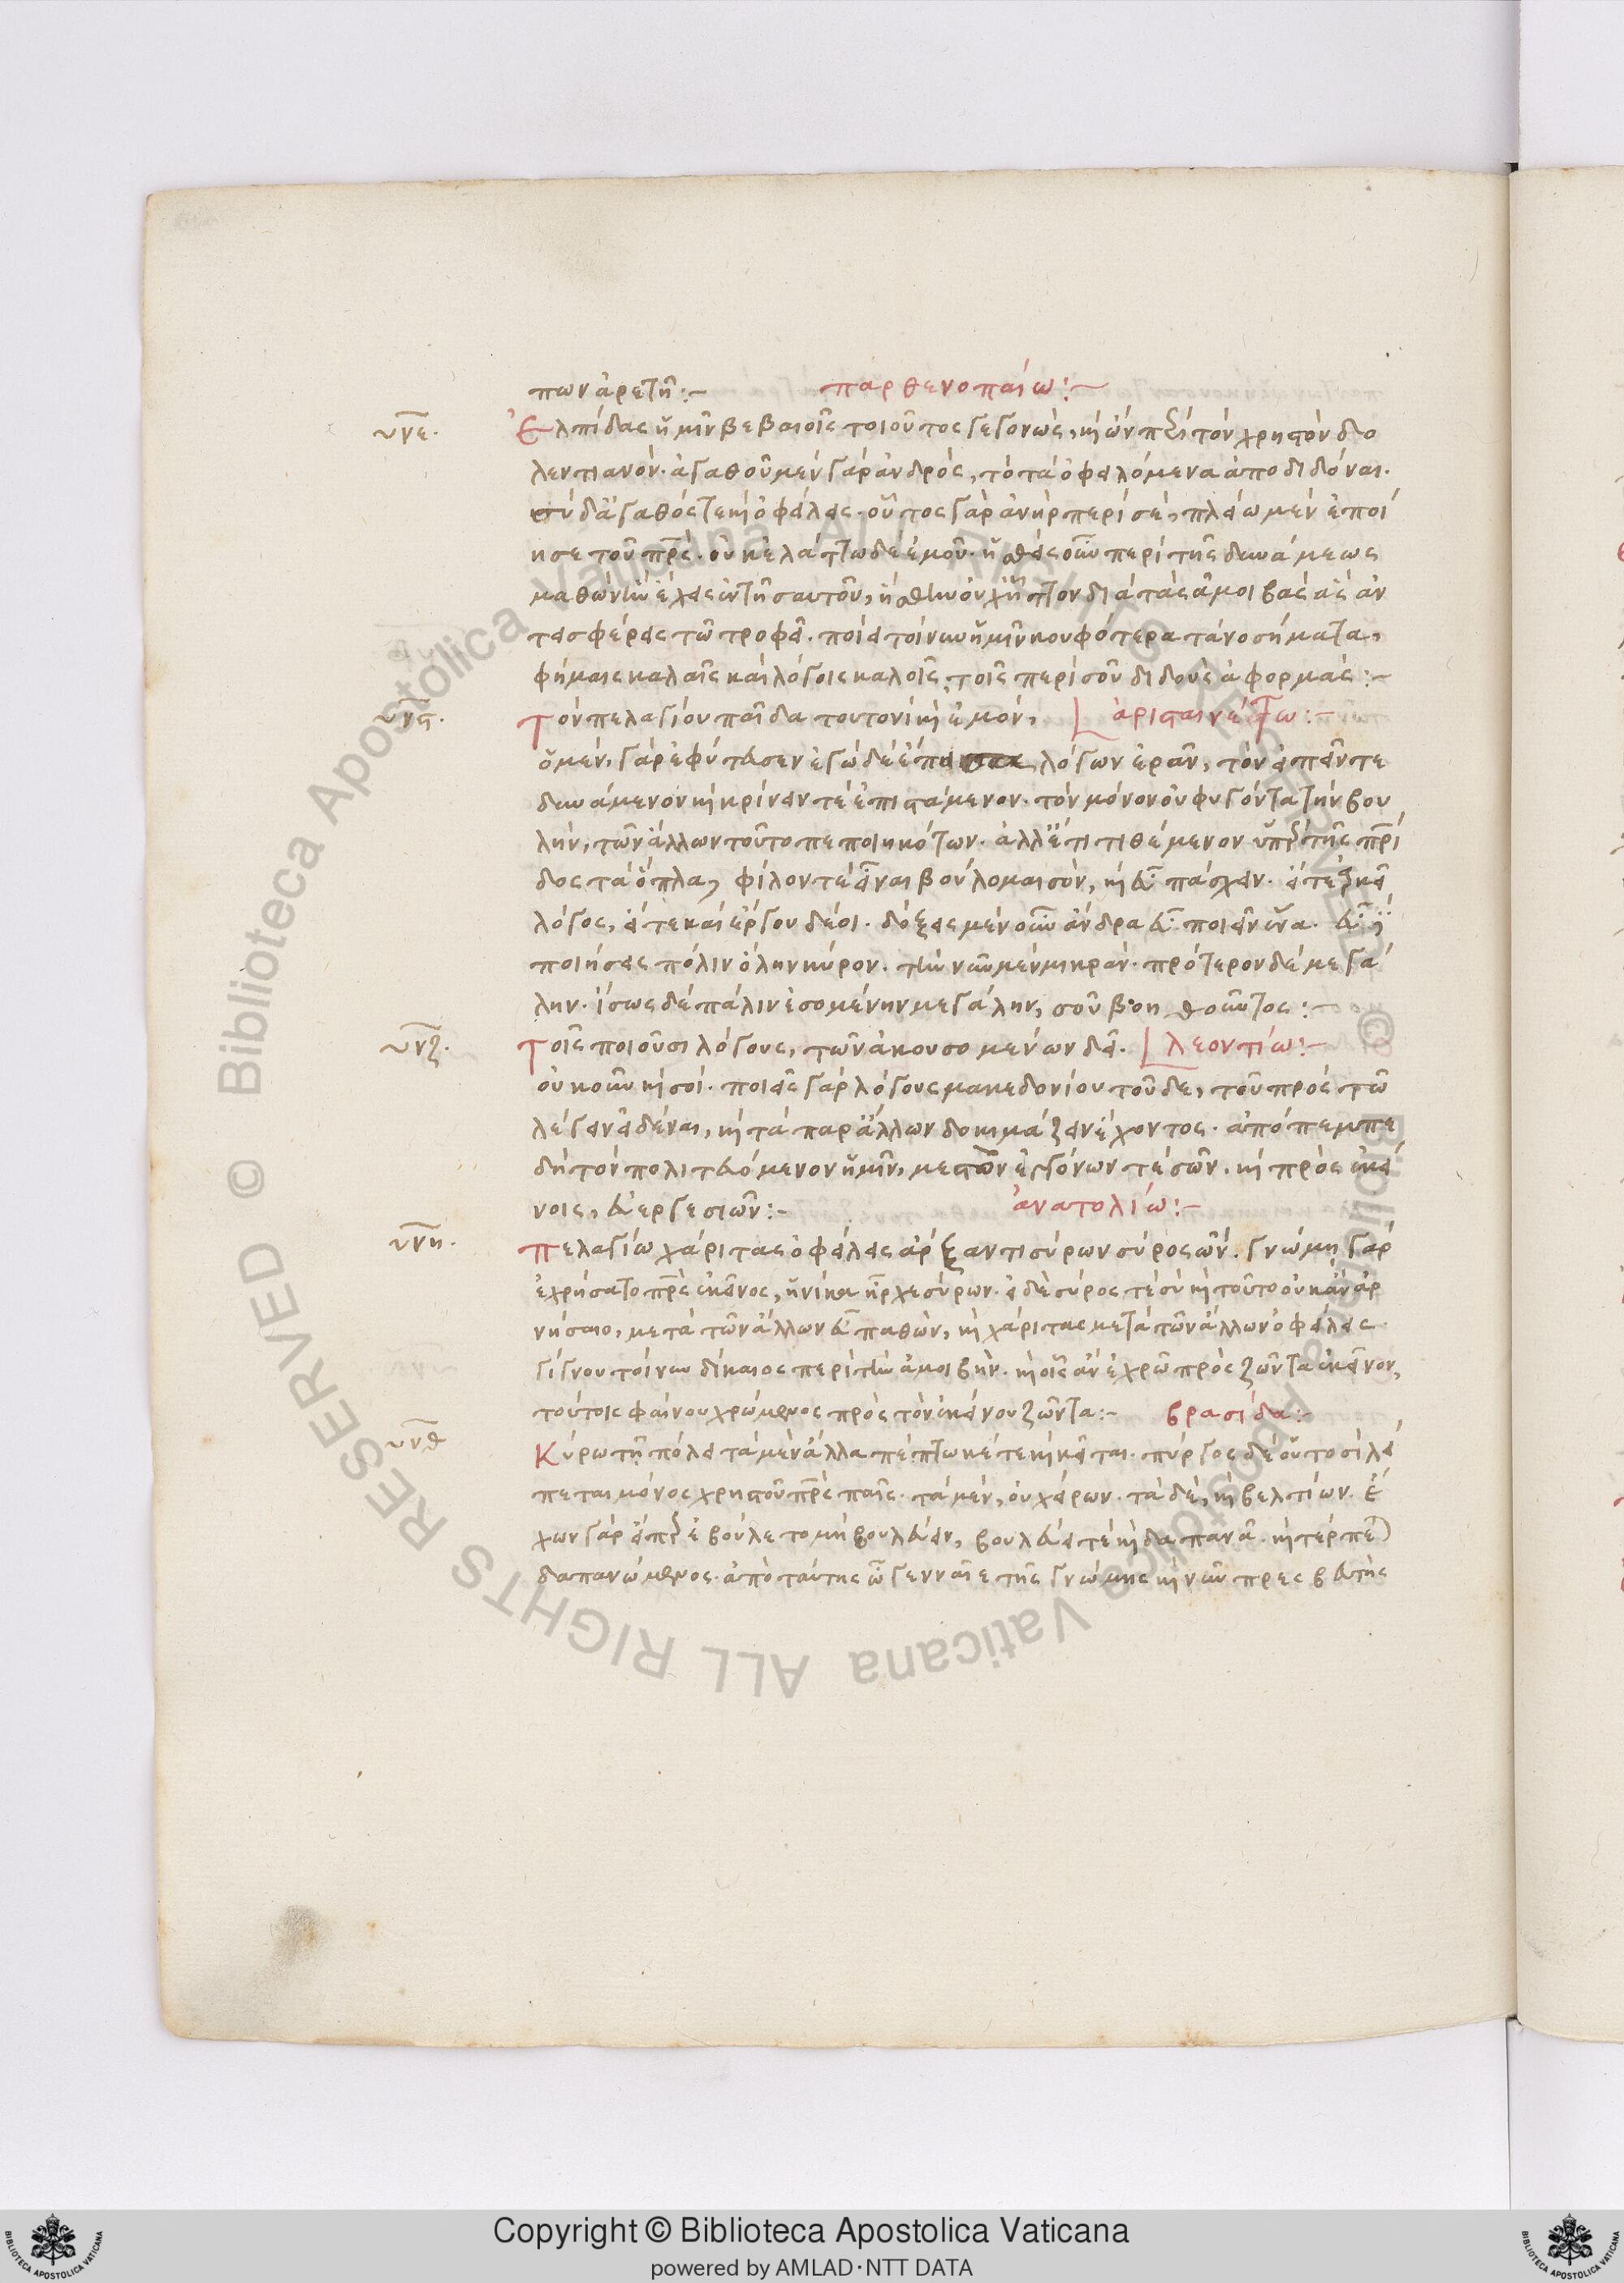 πων ἀρετῇ:– παρθενοπαίω:–
υνε. Ἐλπίδας ἡμῖν βεβαιοῖς τοιοῦτος γεγονὼς, καὶ ὢν περὶ τὸν χρηστὸν διο
λεντιανόν. ἀγαθοῦ μὲν γὰρ ἀνδρὸς, τὸ τὰ ὀφειλόμενα ἀποδιδόναι.
σὺ δ' ἀγαθός τε καὶ ὀφείλεις. οὗτος γὰρ ἀνὴρ περὶ σὲ, πλείω μὲν ἐποί
ησε τοῦ πρς. οὐκ ἐλάττω δὲ ἐμοῦ. ἥσθεις οὖν περὶ τῆς δυνάμεως
μαθὼν ἣν ἔχεις ἐν τῇ σαυτοῦ, ἥσθην οὐχ ἧττον διὰ τὰς ἀμοιβὰς ἃς ἀν
τεισφέρεις τῶ τροφεῖ. ποίει τοίνυν ἡμῖν κουφότερα τὰ νοσήματα,
φήμαις καλαῖς καὶ λόγοις καλοῖς, τοῖς περὶ σοῦ διδοὺς ἀφορμάς:–
υνς. Τὸν πελαγίου παῖδα τουτονὶ καὶ ἐμόν, ἀρισταινέτω:–
ὁ μὲν γὰρ ἐφύτευσεν ἐγὼ δὲ ἔπεισα λόγων ἐρᾶν, τὸν εἰπεῖν τε
δυνάμενον καὶ κρίνειν τε ἐπιστάμενον. τὸν μόνον οὐ φυγόντα τὴν βου
λὴν, τῶν ἄλλων τοῦτο πεποιηκότων. ἀλλ' ἔτι τιθέμενον ὑπὲρ τῆς πρί
δος τὰ ὅπλα, φίλον τε εἶναι βούλομαι σὸν, καὶ εὖ πάσχειν. εἴτε ἀρκεῖ
λόγος, εἴτε καὶ ἔργου δέοι. δόξεις μὲν οὖν ἄνδρα εὖ ποιεῖν ἕνα. εὖ
ποιήσεις πόλιν ὅλην κύρον. τὴν νῦν μὲν μικράν. πρότερον δὲ μεγά
λην. ἴσως δὲ πάλιν ἐσομένην μεγάλην, σοῦ βοηθοῦντος:–
υνζ. Τοῖς ποιοῦσι λόγους, τῶν ἀκουσομένων δεῖ. λεοντίω:–
οὐκοῦν καὶ σοί. ποιεῖς γὰρ λόγους μακεδονίου τοῦδε, τοῦ πρὸς τῶ
λέγειν εἰδέναι, καὶ τὰ παρ' ἄλλων δοκιμάζειν ἔχοντος. ἀπόπεμπε
δὴ τὸν πολιτευόμενον ἡμῖν, μεστὸν ἐγγόνων τε σῶν. καὶ πρὸς ἐκεί
νοις, εὐεργεσιῶν:– ἀνατολίω:–
υνη. Πελαγίω χάριτας ὀφείλεις ἄρξαντι σύρων σύρος ὤν. γνώμη γὰρ
ἐχρήσατο πρς ἐκεῖνος, ἡνίκα ἦρχε σύρων. εἰ δὲ σύρος τε σὺ καὶ τοῦτο οὐκ ἂν ἀρ
νήσαιο, μετὰ τῶν ἄλλων εὖ παθὼν, καὶ χάριτας μετὰ τῶν ἄλλων ὀφείλεις.
γίγνου τοίνυν δίκαιος περὶ τὴν ἀμοιβήν. καὶ οἷς ἂν ἐχρῶ πρὸς ζῶντα ἐκεῖνον,
τούτοις φαίνου χρώμενος πρὸς τὸν ἐκείνου ζῶντα:– βρασίδα:–
υνθ Κύρω τῇ πόλει τὰ μὲν ἄλλα πέπτωκέ τε καὶ κεῖται. πύργος δὲ οὑτοσὶ λεί
πεται μόνος χρηστοῦ πρς παῖς. τὰ μὲν, οὐ χείρων. τὰ δὲ, καὶ βελτίων. ἔ
χων γὰρ εἴπερ ἐβούλετο μὴ βουλεύειν, βουλεύει τε καὶ δαπανᾶ. καὶ τέρπε
δαπανώμενος. ἀπὸ ταύτης ὦ γενναῖε τῆς γνώμης καὶ νῦν πρεσβευτὴς